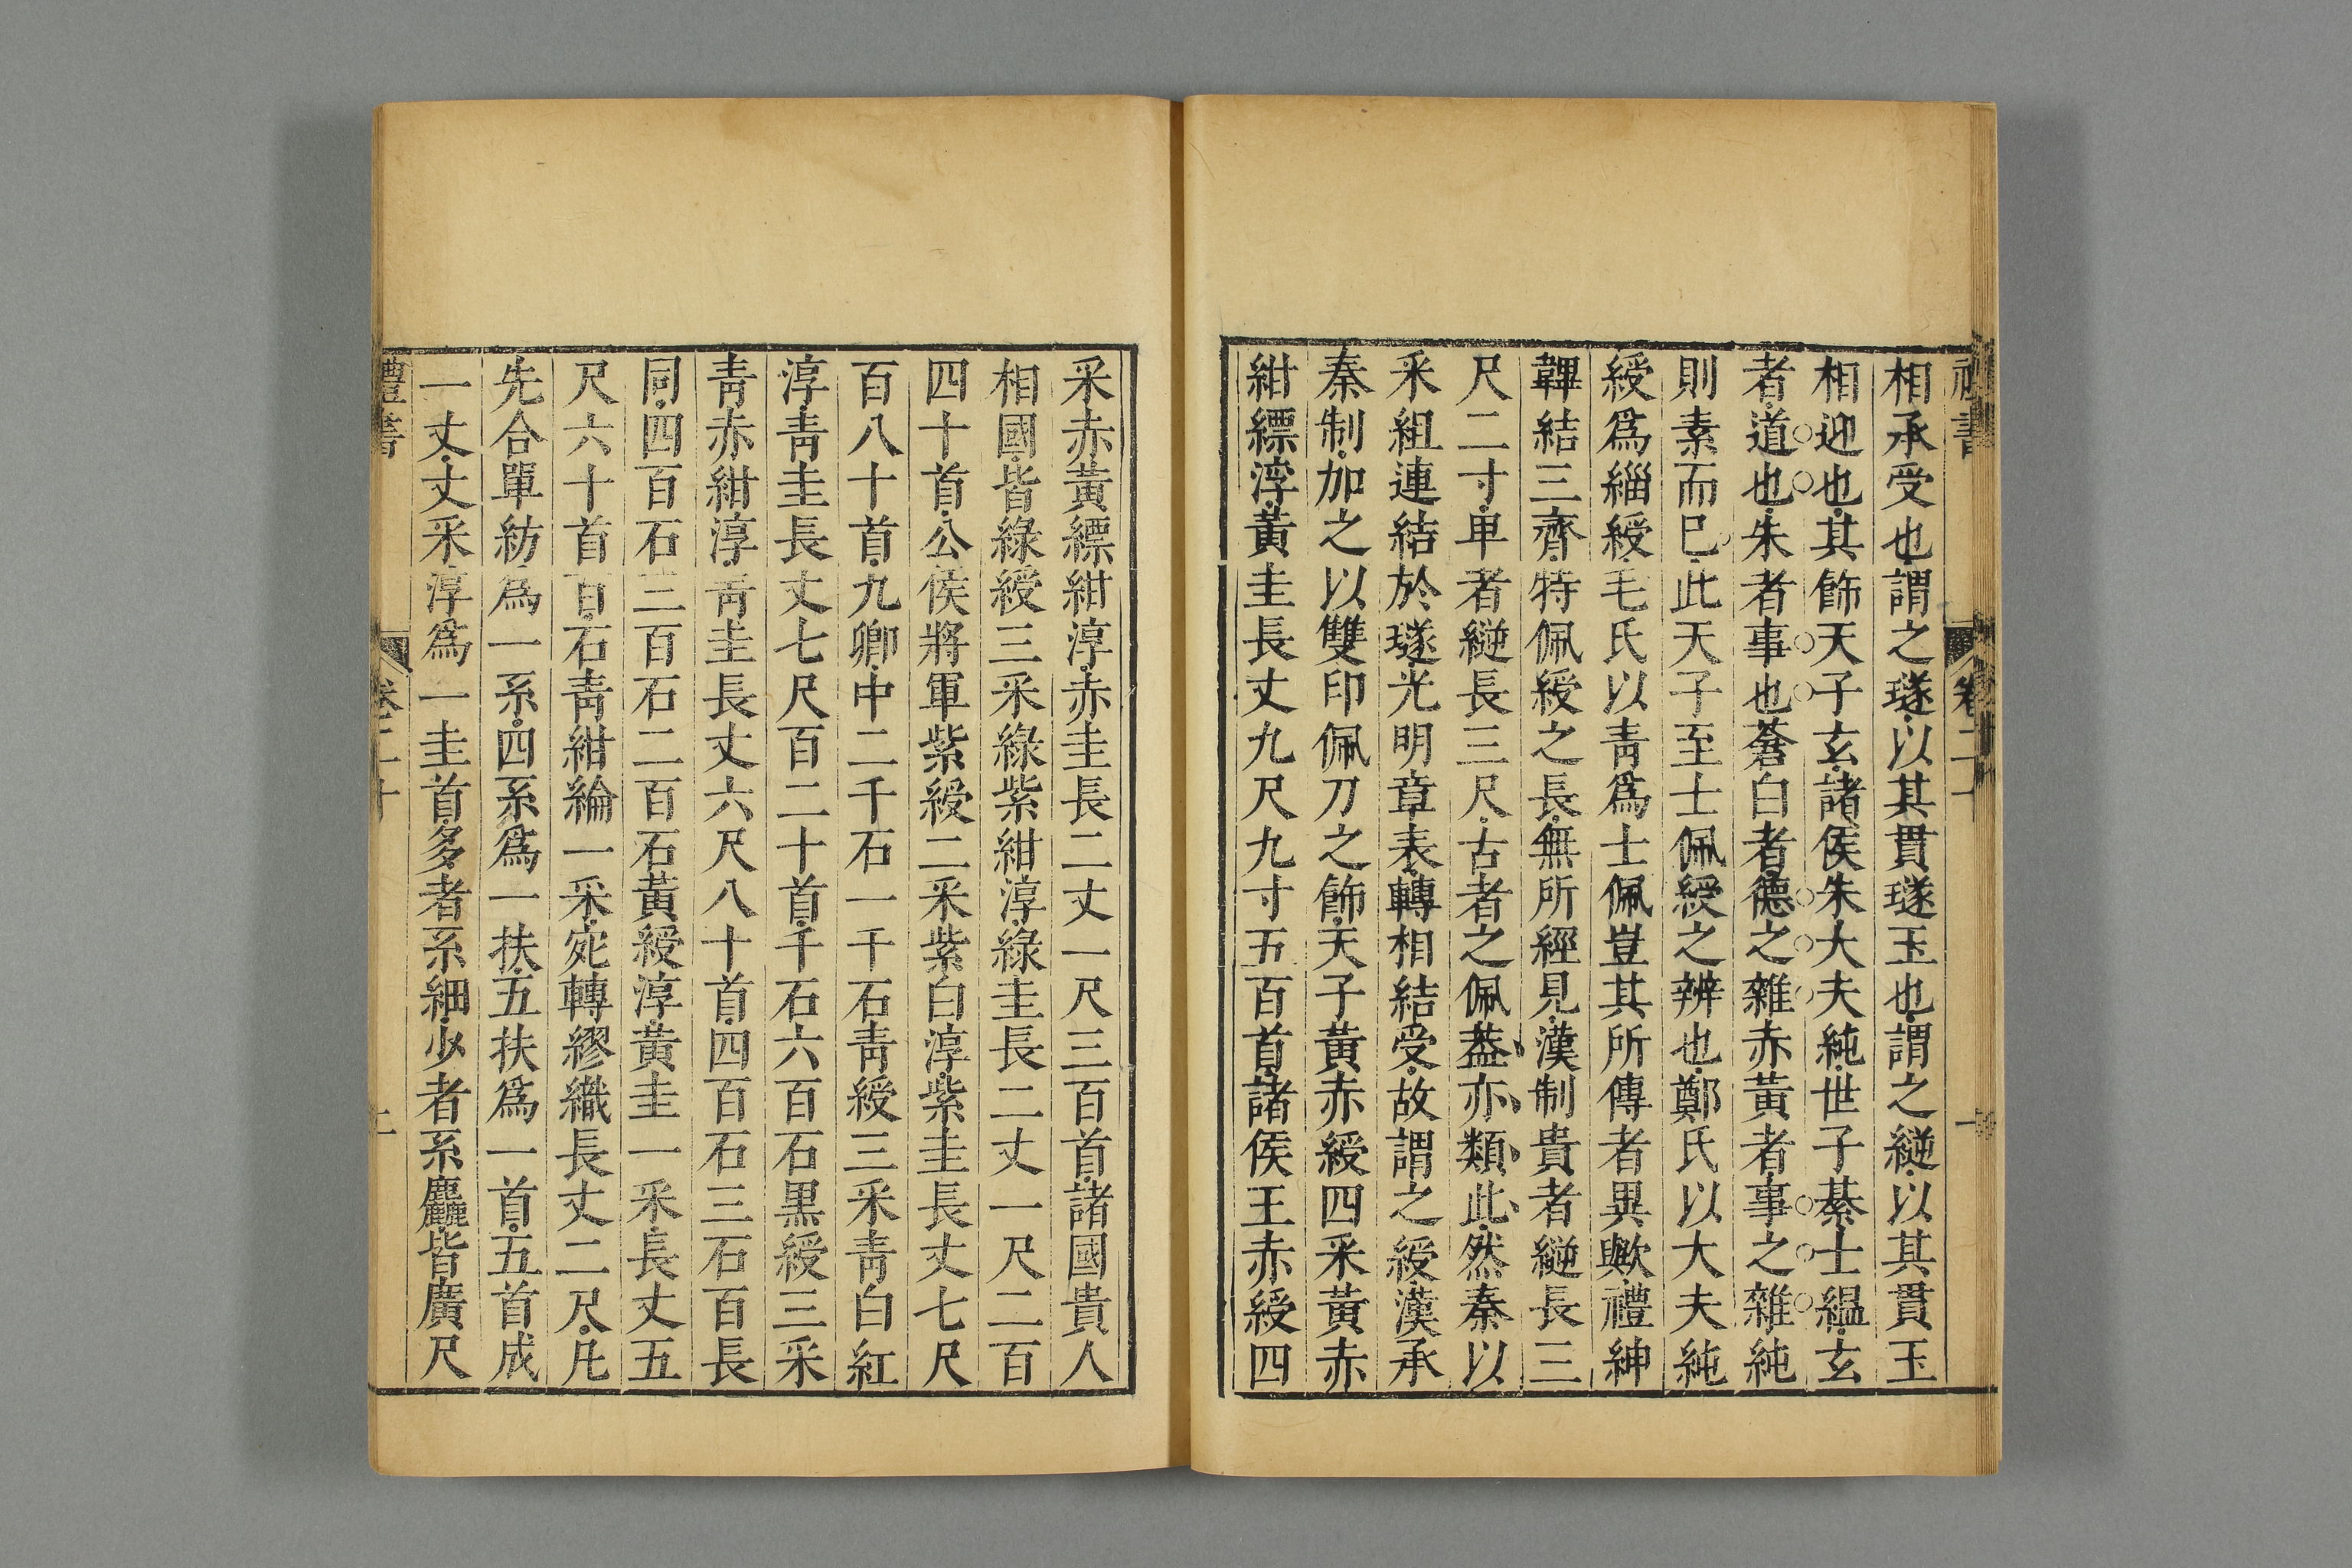 相承受也謂之璲以其貫璲玉也謂之縌以其貫玉
相迎也其飾天子玄諸侯朱大夫純世子綦士縕玄
者道也朱者事也蒼白者德之雜赤黃者事之雜純
則素而巳此天子至士佩綬之辨也鄭氏以大夫純
綬爲緇綬毛氏以靑爲士佩豈其所傳者異歟禮紳
韠結三齊特佩綬之長無所經見漢制貴者縌長三
尺二寸单者縌長三尺古者之佩葢亦類此然秦以
采組連結於璲光明章表轉相結受故謂之綬漢承
秦制加之以雙印佩刀之飾天子黃赤綬四采黃赤
紺縹淳黃圭長丈九尺九寸五百首諸侯王赤綬四
采赤黃縹紺淳赤圭長二丈一尺三百首諸國貴人
相國皆綠綬三采綠紫紺淳綠圭長二丈一尺二百
四十首公侯將軍紫綬二采紫白淳紫圭長丈七尺
百八十首九卿中二千石一千石靑綬三采靑白紅
淳靑圭長丈七尺百二十首千石六百石黑綬三采
靑赤紺淳靑圭長丈六尺八十首四百石三石百長
同四百石三百石二百石黃綬淳黃圭一采長丈五
尺六十首百石靑紺綸一采宛轉繆織長丈二尺凡
先合單紡爲一系四系爲一扶五扶爲一首五首成
一丈丈采淳爲一圭首多者系細少者系麤皆廣尺
禮書 卷二十